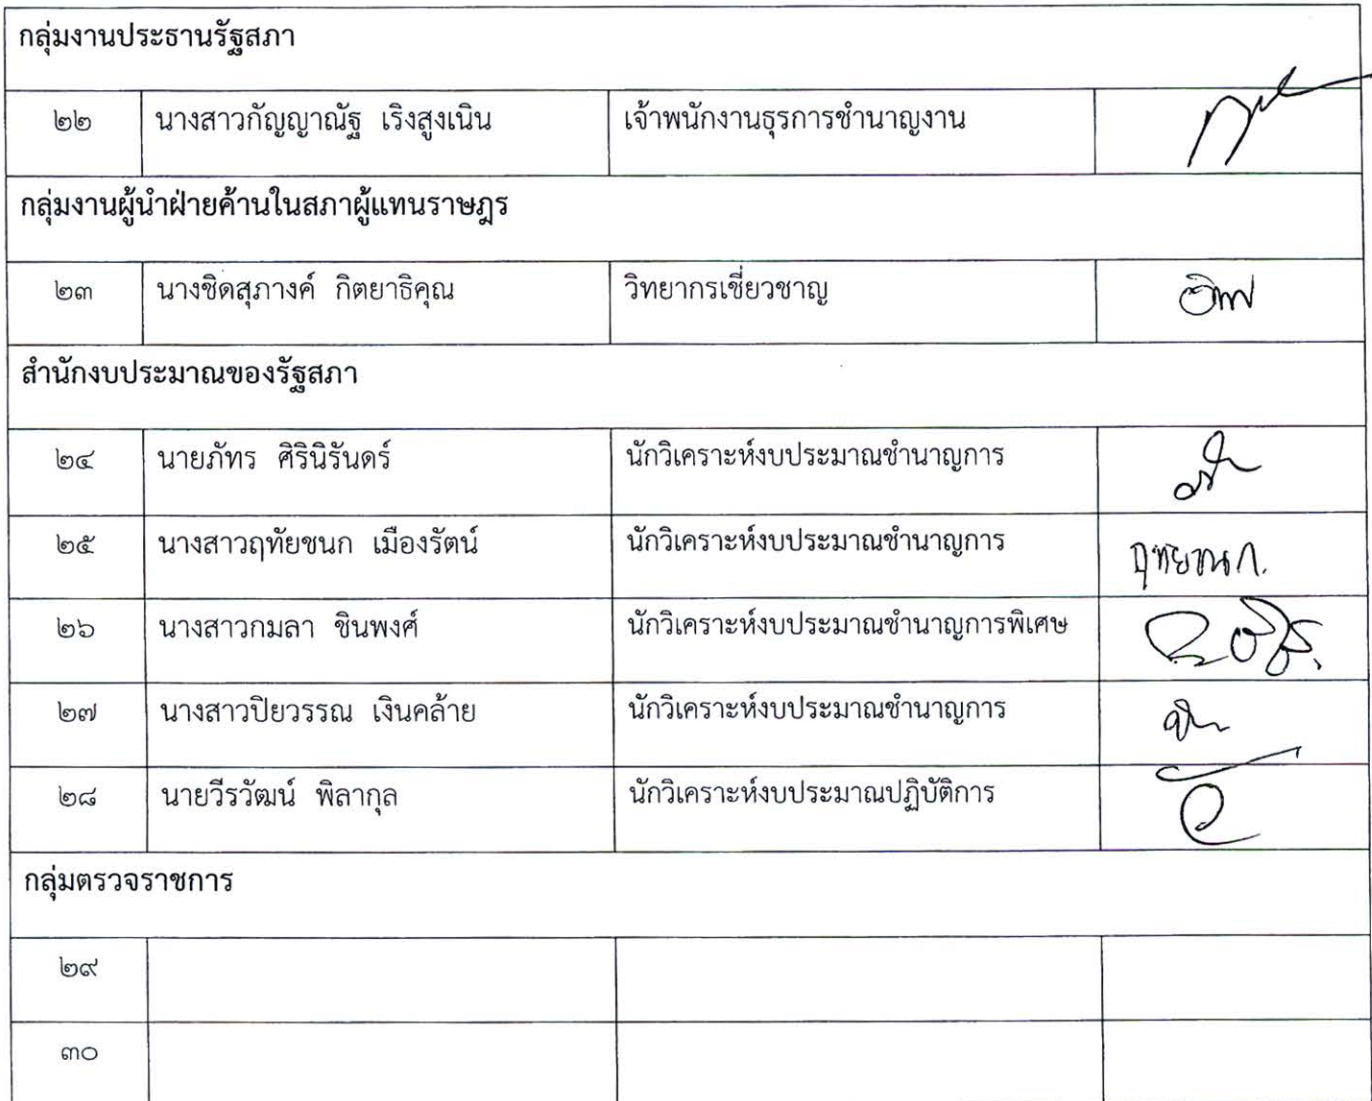 กลุ่มงานประธานรัฐสภา
๒๒ นางสาวกัญญาณัฐ เริงสูงเนิน เจ้าพนักงานธุรการชำนาญงาน
กลุ่มงานผู้นำฝ่ายค้านในสภาผู้แทนราษฎร
๒๓ นางชิดสุภางค์ กิตยาธิคุณ วิทยากรเชี่ยวชาญ
สำนักงบประมาณของรัฐสภา
๒๔ นายภัทร ศิรินิรันดร์ นักวิเคราะห์งบประมาณชำนาญการ
๒๕ นางสาวฤทัยชนก เมืองรัตน์ นักวิเคราะห์งบประมาณชำนาญการ ฤทัยชนก.
๒๖ นางสาวกมลา ชินพงศ์ นักวิเคราะห์งบประมาณชำนาญการพิเศษ
๒๗ นางสาวปิยวรรณ เงินคล้าย นักวิเคราะห์งบประมาณชำนาญการ
๒๘ นายวีรวัฒน์ พิลากุล นักวิเคราะห์งบประมาณปฏิบัติการ
กลุ่มตรวจราชการ
๒๙
๓๐